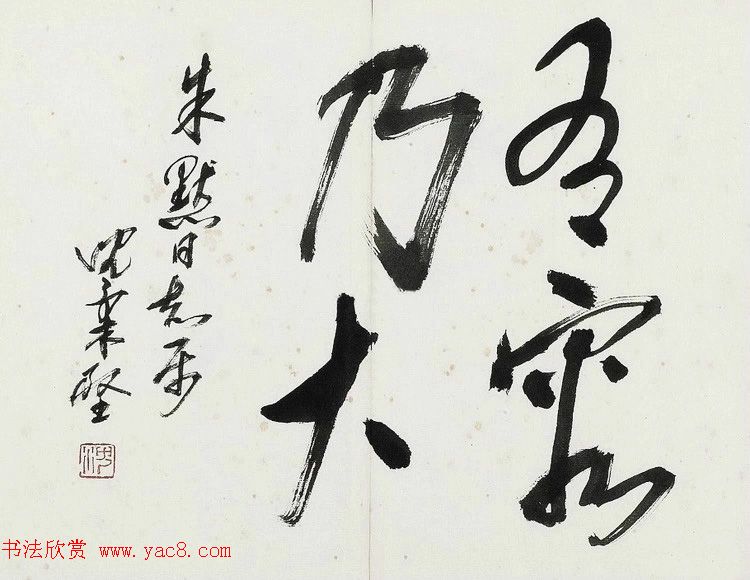 有容
乃大
朱默日
沈
书法欣赏 www.yac8.com